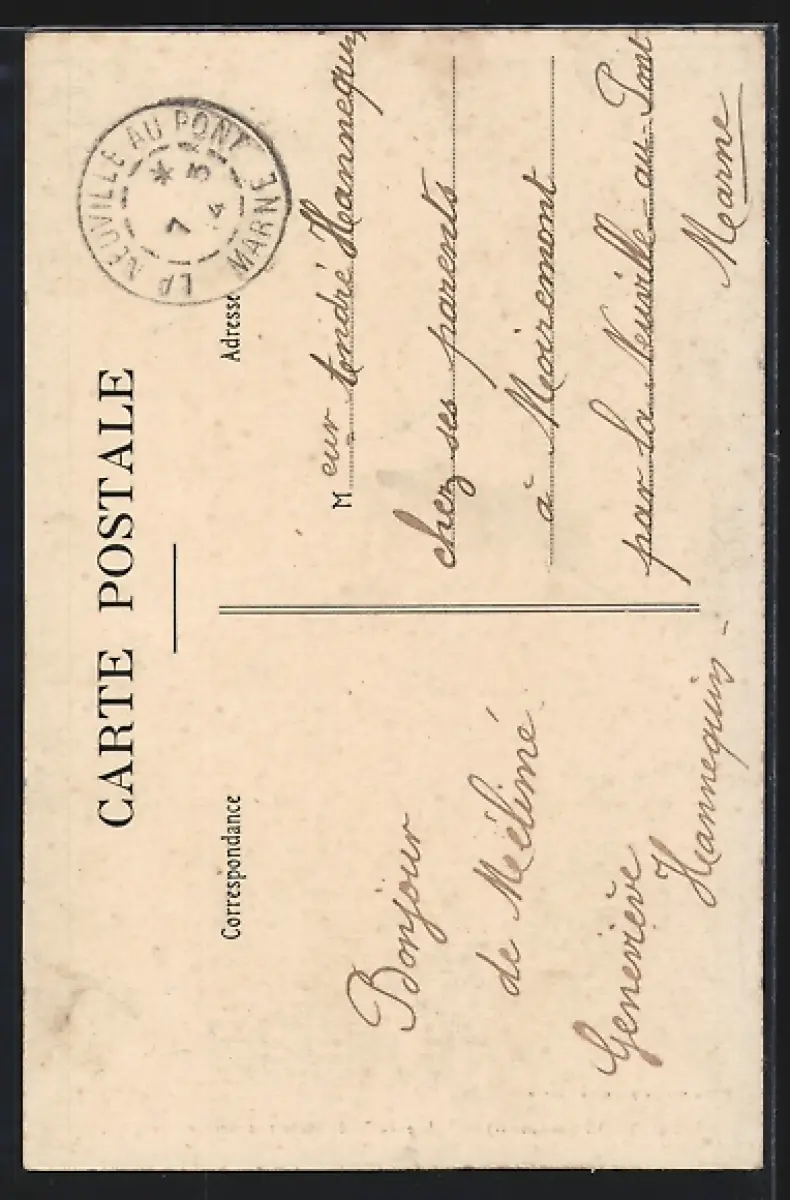 CARTE POSTALE
Correspondance
Bonjour
de Mélimé
Geneviève
Hannequin -
LA NEUVILLE AU PONT
MARNE
* 3
7 4
Adresse
Meur André Hannequin
chez ses parents
à Moiremont
par la Neuville-au-Pont
Marne